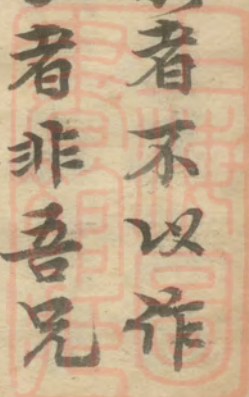 者不以作
者非吾兄